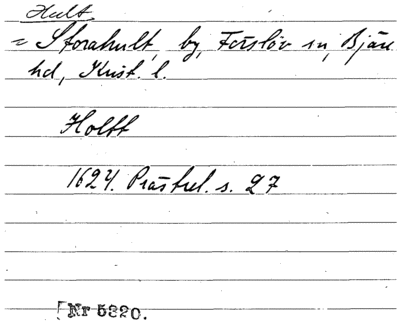 Hult
= Storahult, by, Förslöv sn, Bjäre
hd, Krist. l.
Holtt
1624. Prästrel. s. 27
[Nr 5320.